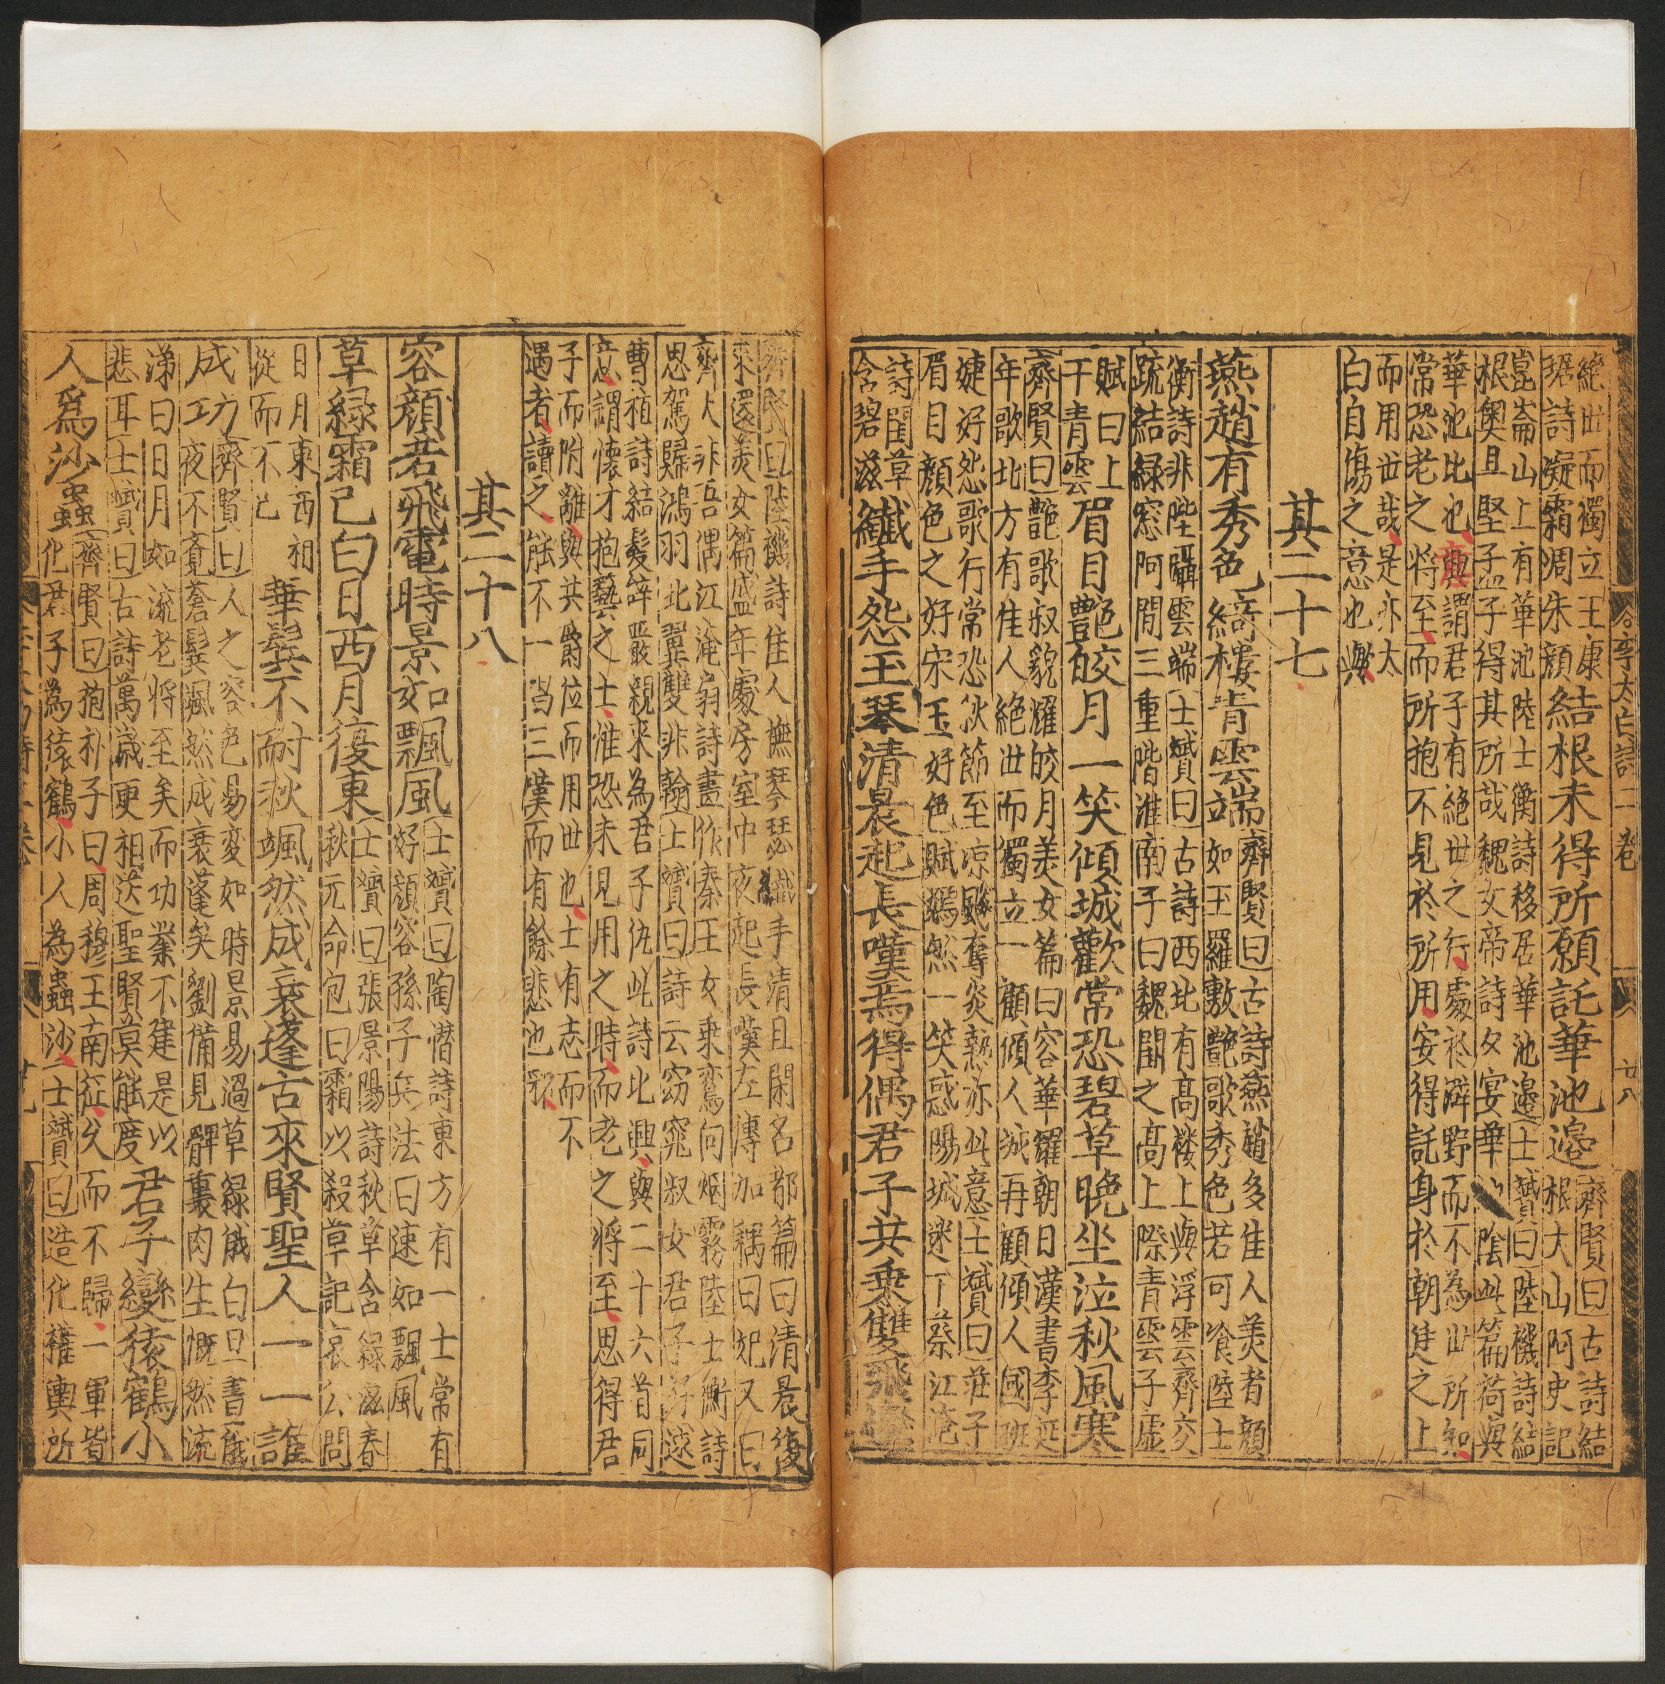 絶世而獨立王康
琚詩凝霜凋朱顔
結根未得所願託華池邊
齊賢曰古詩結
根大山阿史記
崑崙山上有華池陸士衡詩移居華池邊士贇曰陸機詩結
根奧且堅孟子得其所哉魏文帝詩夕宴華池陰此篇荷與
華池比也賡謂君子有絶世之行處於僻野而不為世所知
常恐老之將至而所抱不見於所用安得託身於朝廷之上
而用世哉是亦太
白自傷之意也歟
其二十七
燕趙有秀色綺樓青雲端
齊賢曰古詩燕趙多佳人美者顔
如玉羅敷艶歌秀色若可飡陸士
衡詩非陛躡雲端士贇曰古詩西北有高樓上與浮雲齊交
疏結緑窓阿閣三重階淮南子曰魏闕之高上際青雲子虛
賦曰上
干青雲
眉目艶皎月一笑傾城歡常恐碧草晚坐泣秋風寒
齊賢曰艶歌淑貌耀皎月美女篇曰容華耀朝日漢書李延
年歌北方有佳人絶世而獨立一顧傾人城再顧傾人國班
婕妤怨歌行常恐秋節至凉飈奪炎熱亦此意士贇曰莊子
眉目顔色之好宋玉好色賦嫣然一笑惑陽城迷下蔡江淹
詩閨草
含碧滋
纖手怨玉琴清晨起長嘆焉得偶君子共乗雙飛鸞
齊賢曰陸機詩佳人撫琴瑟纖手清且閑名都篇曰清晨復
來還美女篇盛年處房室中夜起長嘆左傳加耦曰妃又曰
齊大非吾偶江淹扇詩畫作秦王女乗鸞向烟霧陸士衡詩
思駕歸鴻羽北翼雙非翰士贇曰詩云窈窕淑女君子好逑
曹植詩結髮辭嚴親来為君子仇此詩比興與二十六首同
意謂懷才抱藝之士惟恐未見用之時而老之將至思得君
子而附離與共爵位而用世也士有志而不
遇者讀之能不一唱三嘆而有餘悲也耶
其二十八
容顔若飛電時景如飄風
士贇曰陶潛詩東方有一士常有
好顔容孫子兵法曰速如飄風
草緑霜已白日西月復東
士贇曰張景陽詩秋草含緑滋春
秋元命包曰霜以殺草記哀公問
日月東西相
從而不已
華鬢不耐秋颯然成衰蓬古來賢聖人一一誰
成功
齊賢曰人之容色易變如時景易過草緑俄白旦書俄
夜不覺蒼髮颯然成衰蓬矣劉備見髀裏肉生慨然流
涕曰日月如流老將至矣而功業不建是以
悲耳士贇曰古詩萬歲更相送聖賢莫能度
君子變猿鶴小
人爲沙蟲
齊賢曰抱朴子曰周穆王南征久而不歸一軍皆
化君子為猿鶴小人為蟲沙士贇曰造化權輿所